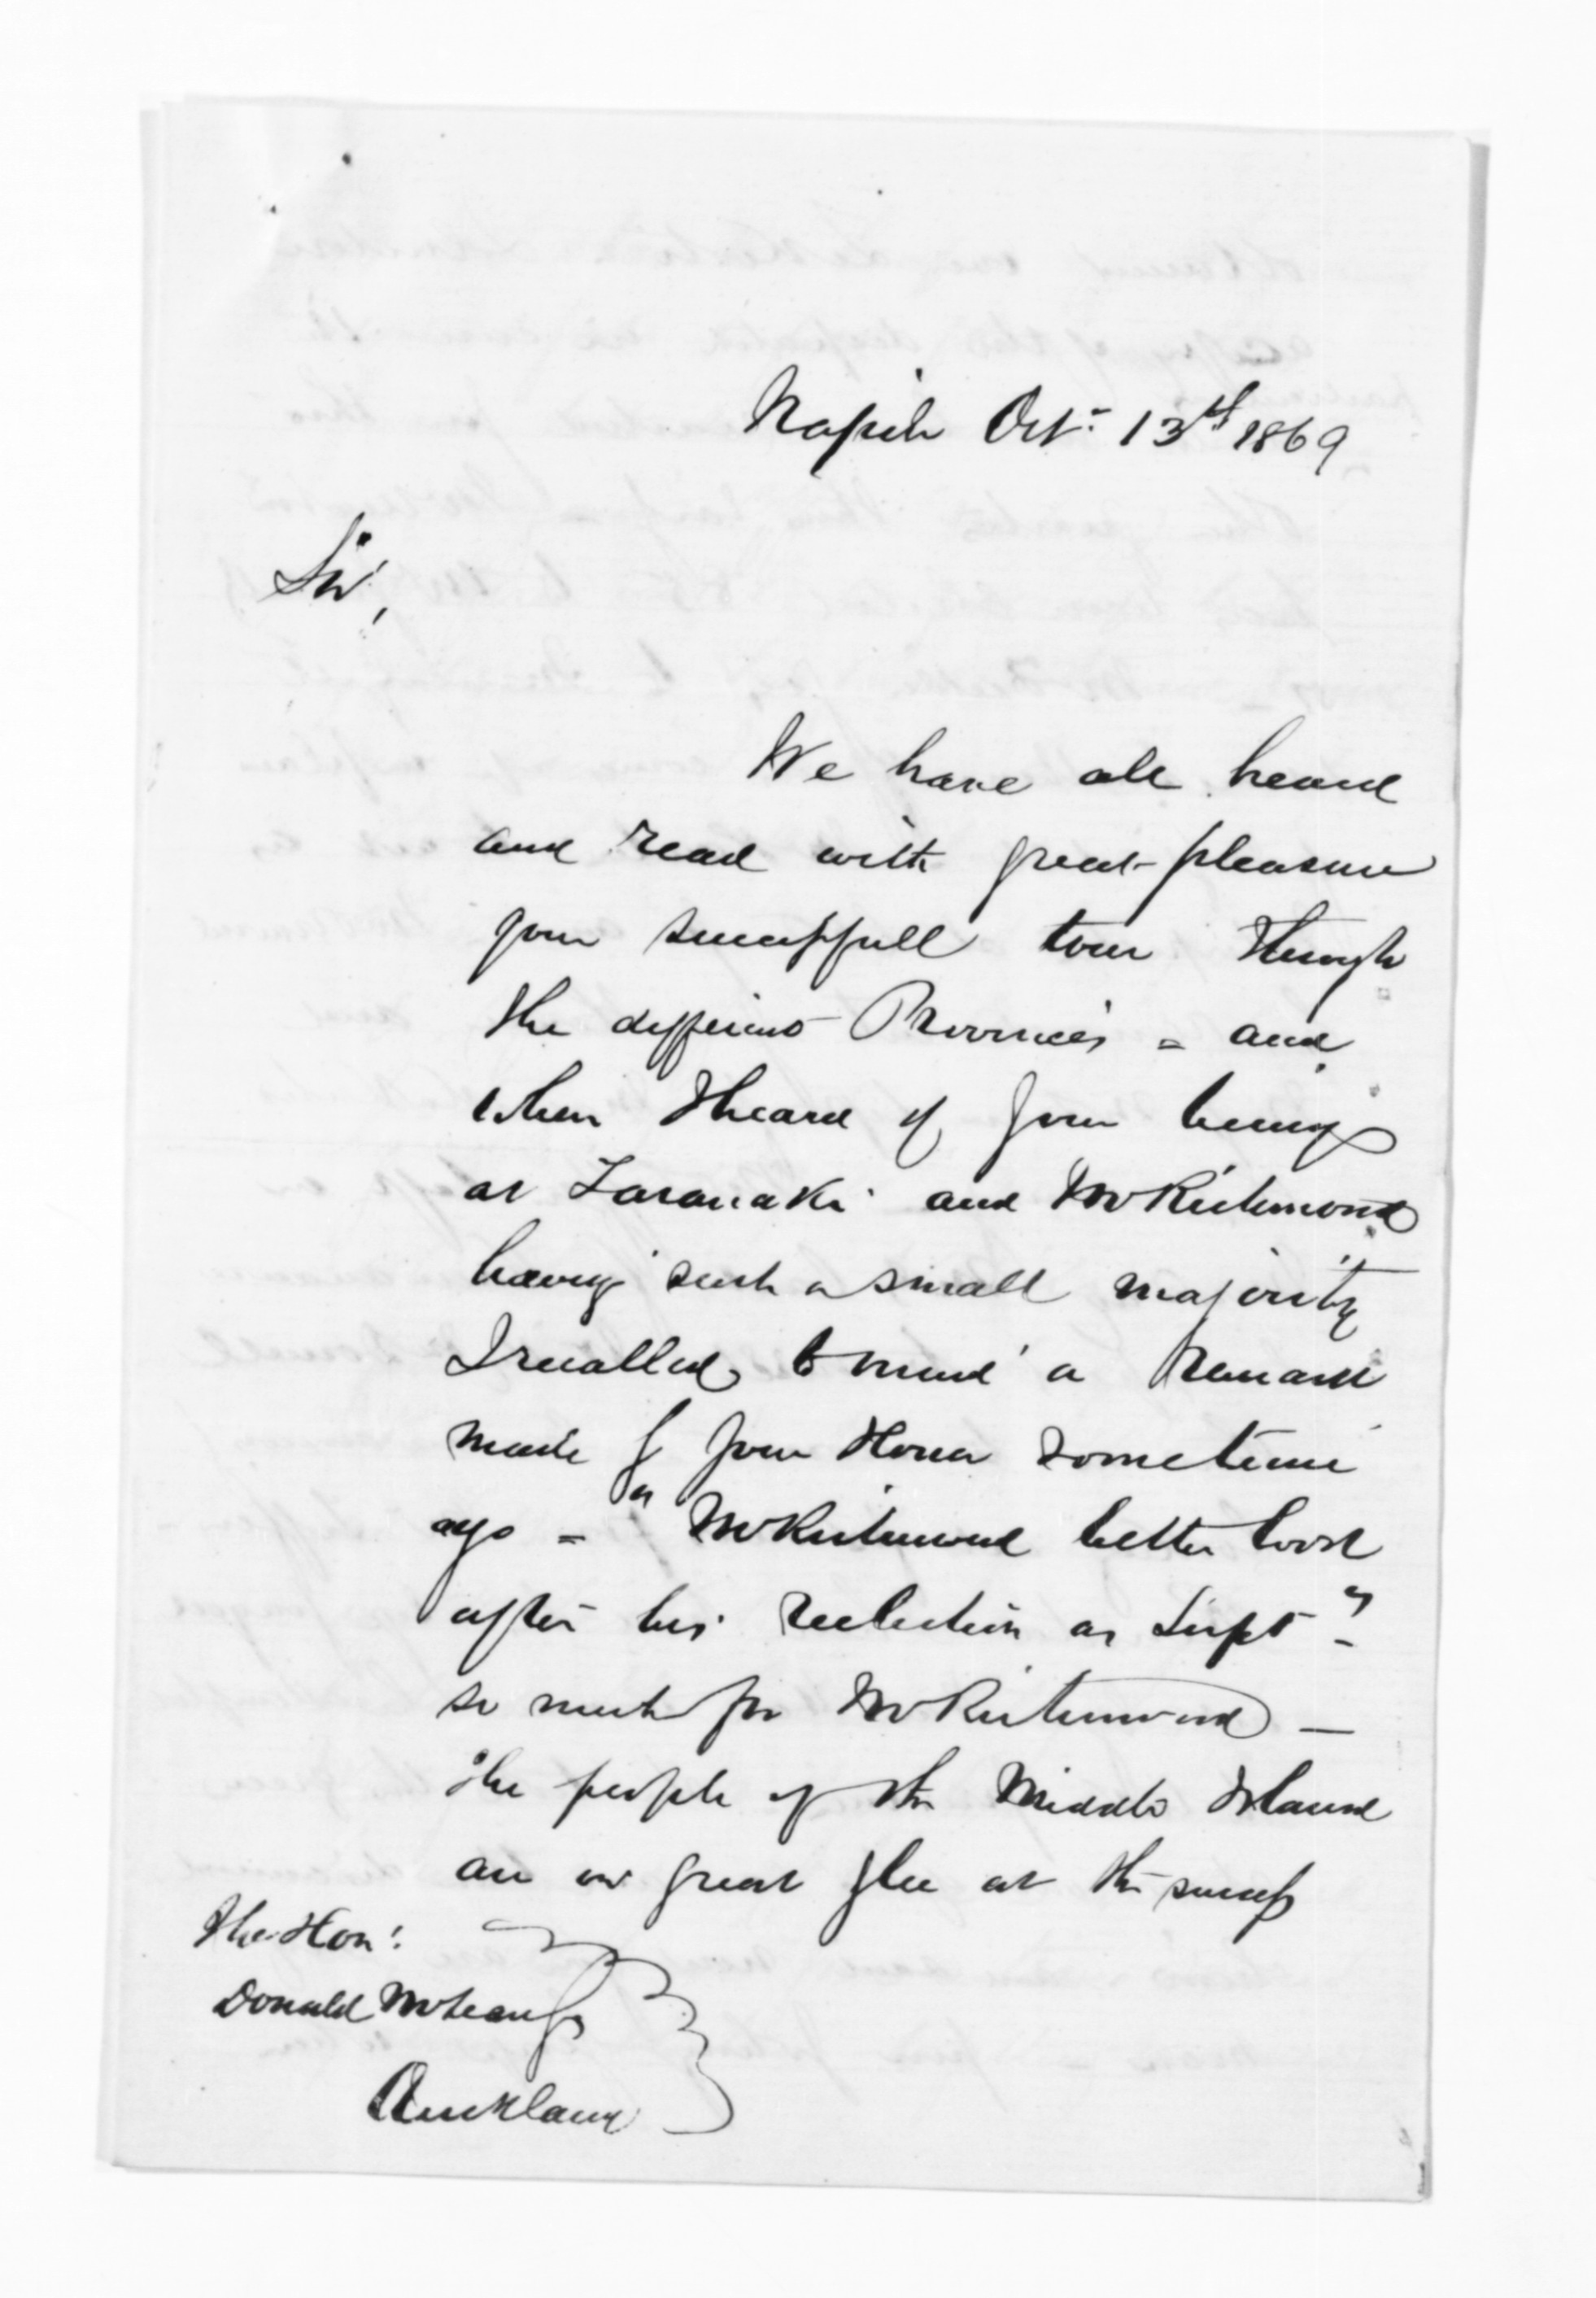 Napier Oct: 13th 1869
Sir,
We have all heard
and read with great pleasure
your successfull tour through
the different Provinces = and
when I heard of your being
at Taranaki and Mr Richmond
having such a small majority
I recalled to mind a remark
made by your Honor sometime
ago = "Mr Richmond better look
after his reelection as Supt"
so much for Mr Richmond —
The people of the Middle Island
are in great glee at the success
The Hon:
Donald McLean
Auckland